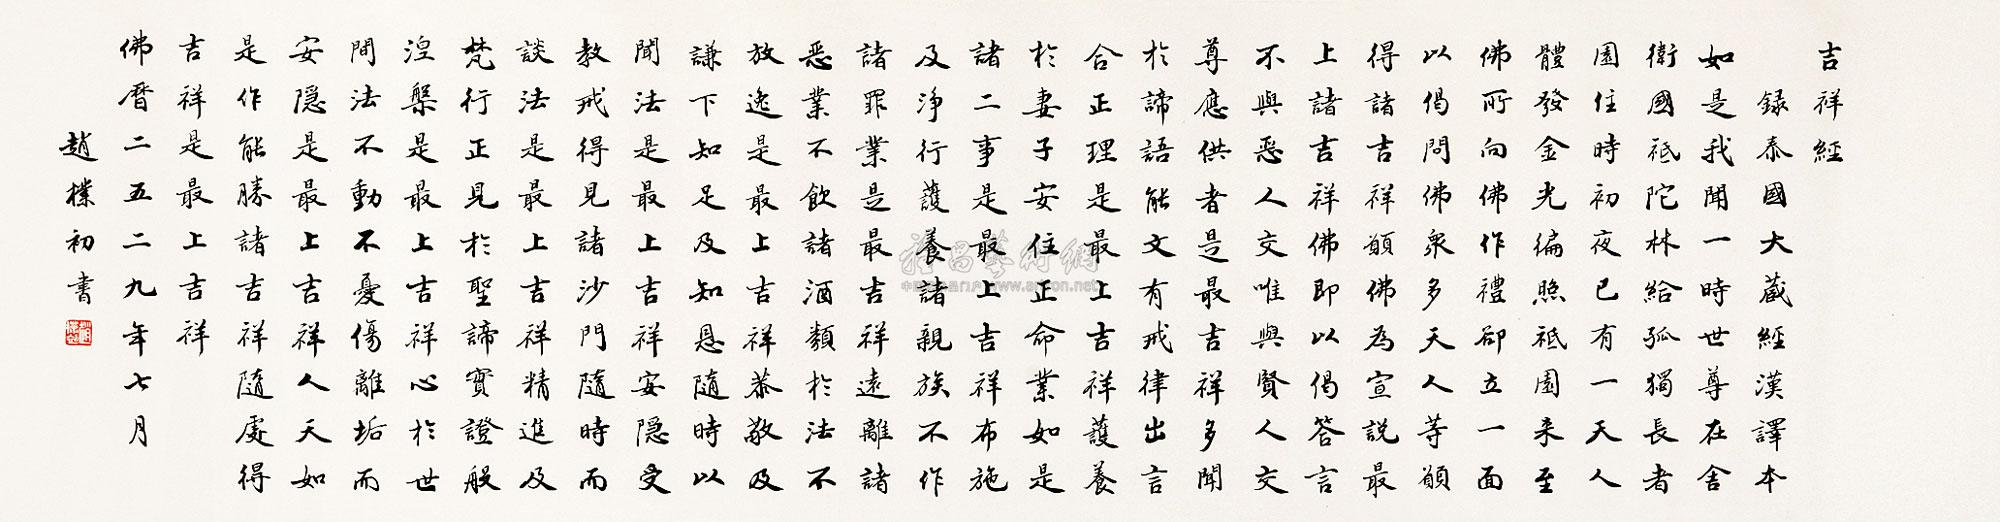 吉祥經
錄泰國大藏經漢譯本
如是我聞一時世尊在舍
衛國祗陀林給孤獨長者
園住時初夜已有一天人
體發金光徧照祗園来至
佛所向佛作禮卻立一面
以偈問佛眾多天人等願
得諸吉祥願佛為宣説最
上諸吉祥佛即以偈答言
不與惡人交唯與賢人交
尊應供者是最吉祥多聞
於諦語能文有戒律出言
合正理是最上吉祥護養
於妻子安住正命業如是
諸二事是最上吉祥布施
及淨行護養諸親族不作
諸罪業是最吉祥遠離諸
惡業不飲諸酒類於法不
放逸是最上吉祥恭敬及
謙下知足及知恩隨時以
聞法是最上吉祥安隱受
教戒得見諸沙門隨時而
談法是最上吉祥精進及
梵行正見於聖諦實證般
涅槃是最上吉祥心於世
間法不動不憂傷離垢而
安隱是最上吉祥人天如
是作能勝諸吉祥隨處得
吉祥是最上吉祥
佛曆二五二九年七月
趙樸初書